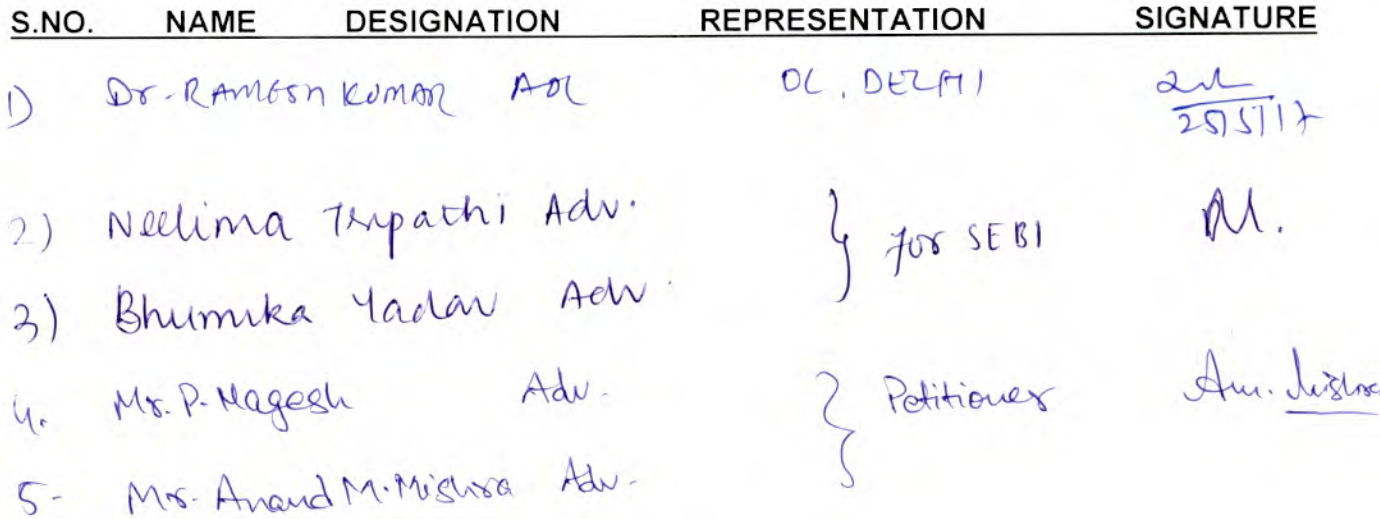 S.NO. NAME DESIGNATION REPRESENTATION SIGNATURE
1) Dr. RAMESH KUMAR AOL OL, DELHI
25/5/17
2) Neelima Tripathi Adv.
} for SEBI
3) Bhumika Yadav Adv.
4. Mr. P. Nagesh Adv. } Petitioner
5- Mr. Anand M. Mishra Adv.